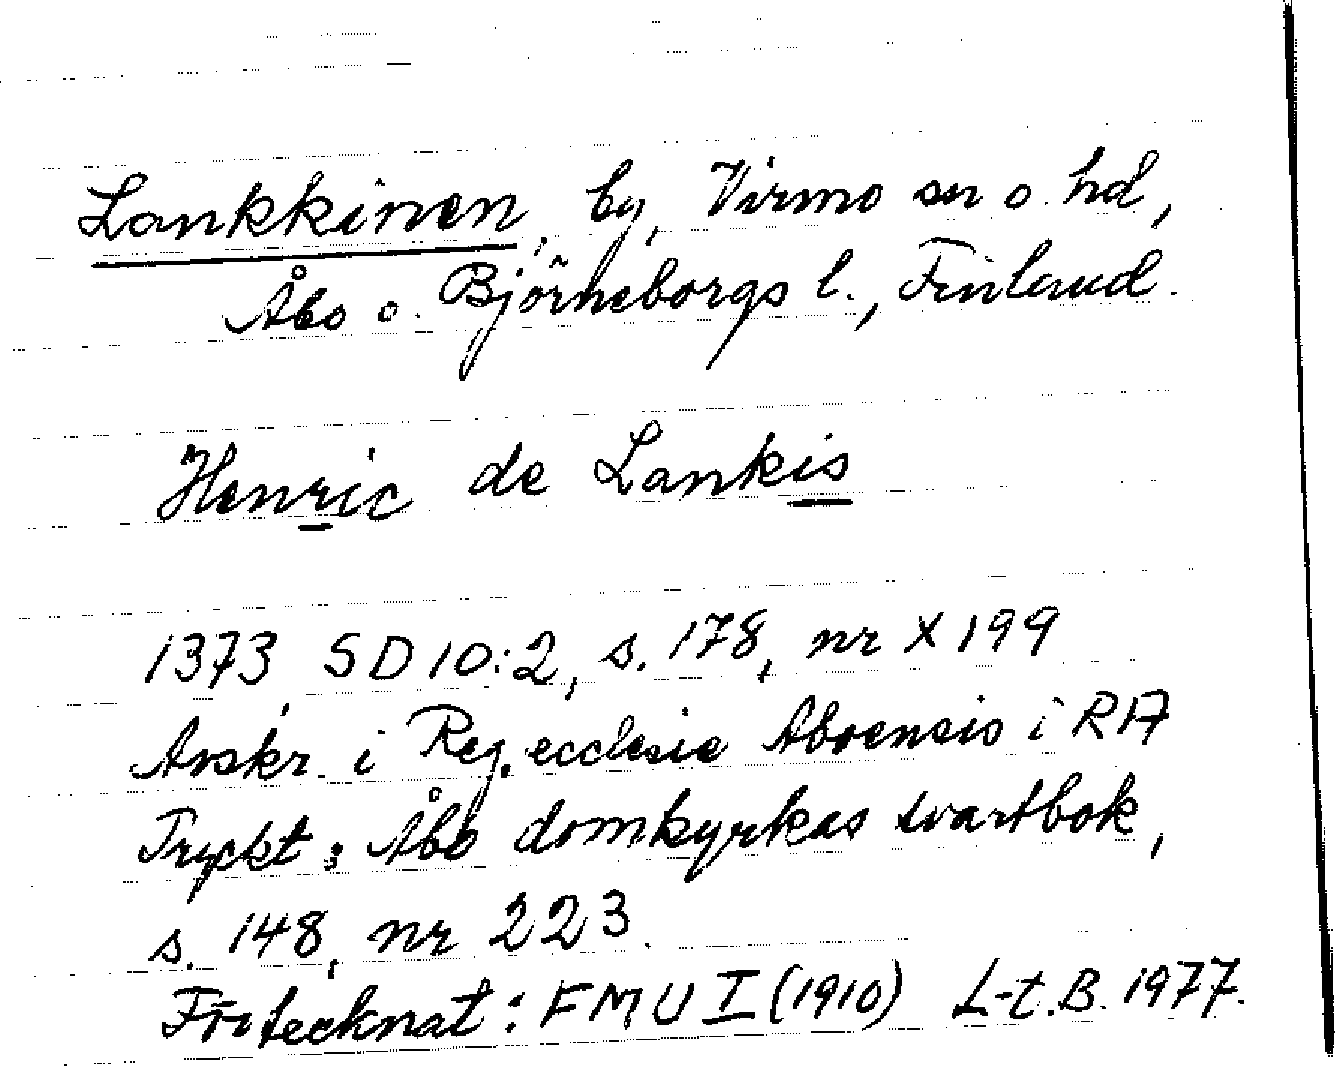 Lankkinen, by, Virmo sn o. hd,
Åbo o. Björneborgs l., Finland.
Henric de Lankis
1373, SD 10:2, s. 178, nr X 199
Avskr. i Reg. ecclesie Aboensis i RA
Tryckt: Åbo domkyrkas svartbok,
s. 148, nr 223.
Förtecknat: FMU I (1910) L-t.B. 1977.